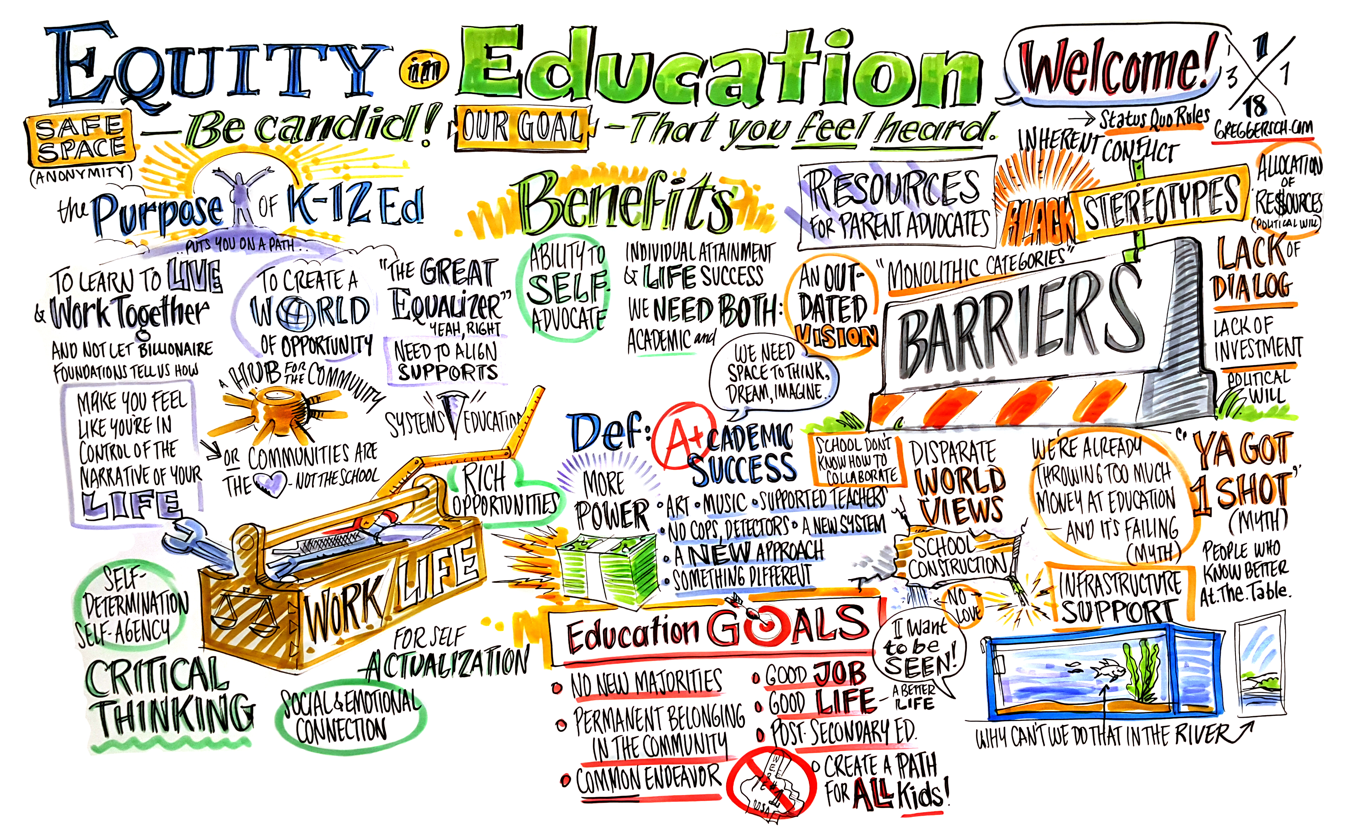 EQUITY in Education
Welcome!
1
3 1
18
GREGGERSCH.COM
SAFE
SPACE
(ANONYMITY)
— Be candid!
OUR GOAL
- That you feel heard.
→ Status Quo Rules
INHERENT
CONFLICT
the Purpose OF K-12 Ed
PUTS YOU ON A PATH...
TO LEARN TO LIVE
& Work Together
AND NOT LET BILLIONAIRE
FOUNDATIONS TELL US HOW
TO CREATE A
WORLD
OF OPPORTUNITY
"THE GREAT
EQUALIZER"
YEAH, RIGHT
NEED TO ALIGN
SUPPORTS
MAKE YOU FEEL
LIKE YOU'RE IN
CONTROL OF THE
NARRATIVE OF YOUR
LIFE
A HUB FOR THE COMMUNITY
OR COMMUNITIES ARE
THE - NOT THE SCHOOL
SYSTEMS EDUCATION
RICH
OPPORTUNITIES
WORK/LIFE
SELF-
DETERMINATION
SELF-AGENCY
CRITICAL
THINKING
FOR SELF
ACTUALIZATION
SOCIAL & EMOTIONAL
CONNECTION
Benefits
ABILITY TO
SELF-
ADVOCATE
INDIVIDUAL ATTAINMENT
& LIFE SUCCESS
WE NEED BOTH:
ACADEMIC and
WE NEED
SPACE TO THINK,
DREAM, IMAGINE.
Def: A+CADEMIC
SUCCESS
MORE
POWER
• ART • MUSIC • SUPPORTED TEACHERS
• NO COPS, DETECTORS • A NEW SYSTEM
• A NEW APPROACH
• SOMETHING DIFFERENT
Education GOALS
• NO NEW MAJORITIES
• PERMANENT BELONGING
IN THE COMMUNITY
• COMMON ENDEAVOR
• GOOD JOB
• GOOD LIFE -
• POST-SECONDARY ED.
• CREATE A PATH
FOR ALL Kids!
I Want
to be
SEEN!
A BETTER
LIFE
RESOURCES
FOR PARENT ADVOCATES
BLACK
STEREOTYPES
ALLOCATION
OF
RE$OURCES
(POLITICAL WILL)
"MONOLITHIC CATEGORIES"
AN OUT-
DATED
VISION
BARRIERS
LACK OF
DIALOG
LACK OF
INVESTMENT
POLITICAL
WILL
SCHOOL DON'T
KNOW HOW TO
COLLABORATE
DISPARATE
WORLD
VIEWS
SCHOOL
CONSTRUCTION
NO
LOVE
WE'RE ALREADY
THROWING TOO MUCH
MONEY AT EDUCATION
AND IT'S FAILING
(MYTH)
"YA GOT
1 SHOT"
(MYTH)
PEOPLE WHO
KNOW BETTER
At. The. Table.
INFRASTRUCTURE
SUPPORT
WHY CAN'T WE DO THAT IN THE RIVER